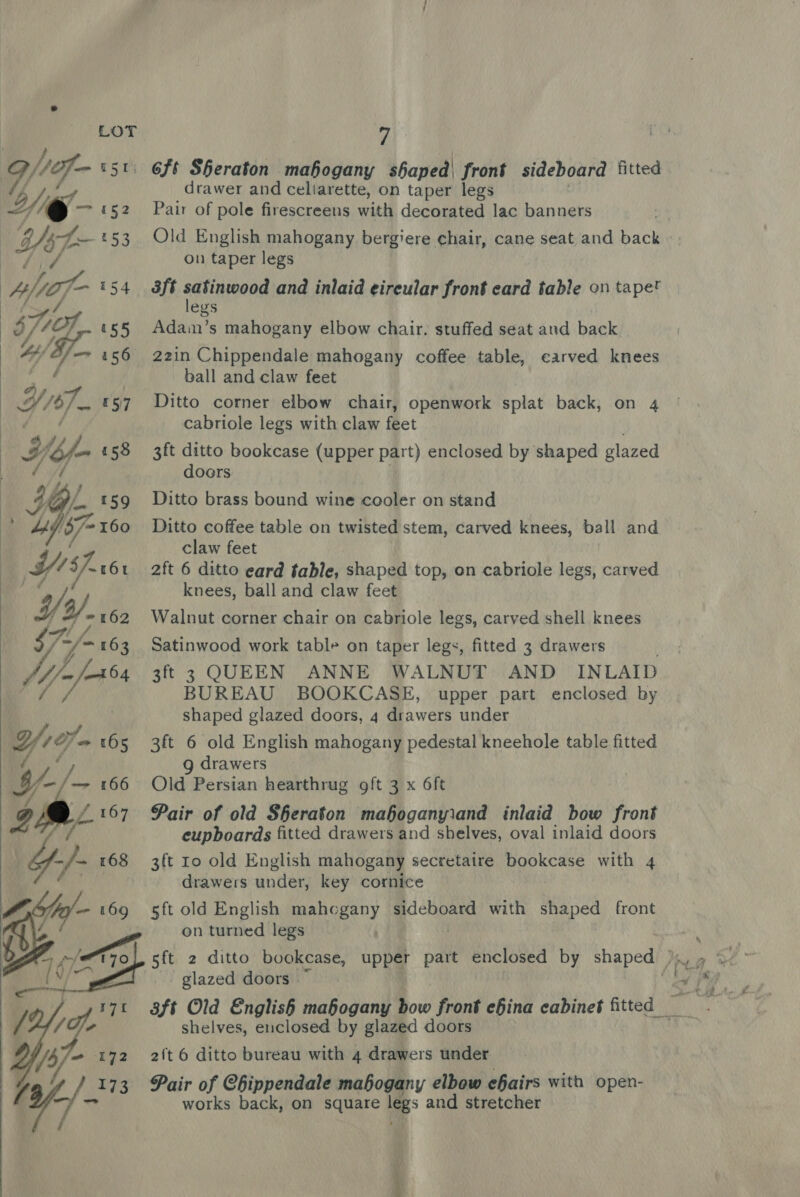 LOT 7
151 6ft Sheraton mahogany shaped front sideboard fitted
drawer and cellarette, on taper legs
152 Pair of pole firescreens with decorated lac banners
153 Old English mahogany bergiere chair, cane seat and back
on taper legs
154 3ft satinwood and inlaid circular front card table on taper
legs
155 Adam's mahogany elbow chair. stuffed seat and back
156 22in Chippendale mahogany coffee table, carved knees
ball and claw feet
157 Ditto corner elbow chair, openwork splat back, on 4
cabriole legs with claw feet
158 3ft ditto bookcase (upper part) enclosed by shaped glazed
doors
159 Ditto brass bound wine cooler on stand
160 Ditto coffee table on twisted stem, carved knees, ball and
claw feet
161 2ft 6 ditto card table, shaped top, on cabriole legs, carved
knees, ball and claw feet
162 Walnut corner chair on cabriole legs, carved shell knees
163 Satinwood work table on taper legs, fitted 3 drawers
164 3ft 3 QUEEN ANNE WALNUT AND INLAID
BUREAU BOOKCASE, upper part enclosed by
shaped glazed doors, 4 drawers under
165 3ft 6 old English mahogany pedestal kneehole table fitted
9 drawers
166 Old Persian hearthrug 9ft 3 x 6ft
167 Pair of old Sheraton mahogany and inlaid bow front
cupboards fitted drawers and shelves, oval inlaid doors
168 3ft 10 old English mahogany secretaire bookcase with 4
drawers under, key cornice
169 5ft old English mahogany sideboard with shaped front
on turned legs
170 5ft 2 ditto bookcase, upper part enclosed by shaped
glazed doors
171 3ft Old English mahogany bow front china cabinet fitted
shelves, enclosed by glazed doors
172 2ft 6 ditto bureau with 4 drawers under
173 Pair of Chippendale mahogany elbow chairs with open-
works back, on square legs and stretcher